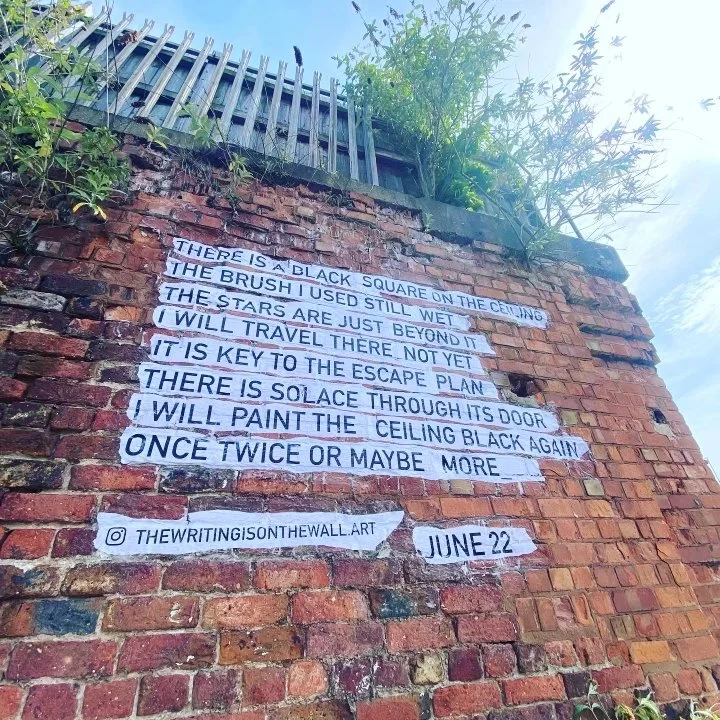 THERE IS A BLACK SQUARE ON THE CEILING
THE BRUSH I USED STILL WET
THE STARS ARE JUST BEYOND IT
I WILL TRAVEL THERE NOT YET
IT IS KEY TO THE ESCAPE PLAN
THERE IS SOLACE THROUGH ITS DOOR
I WILL PAINT THE CEILING BLACK AGAIN
ONCE TWICE OR MAYBE MORE_ _
THEWRITINGISONTHEWALL.ART
JUNE 22